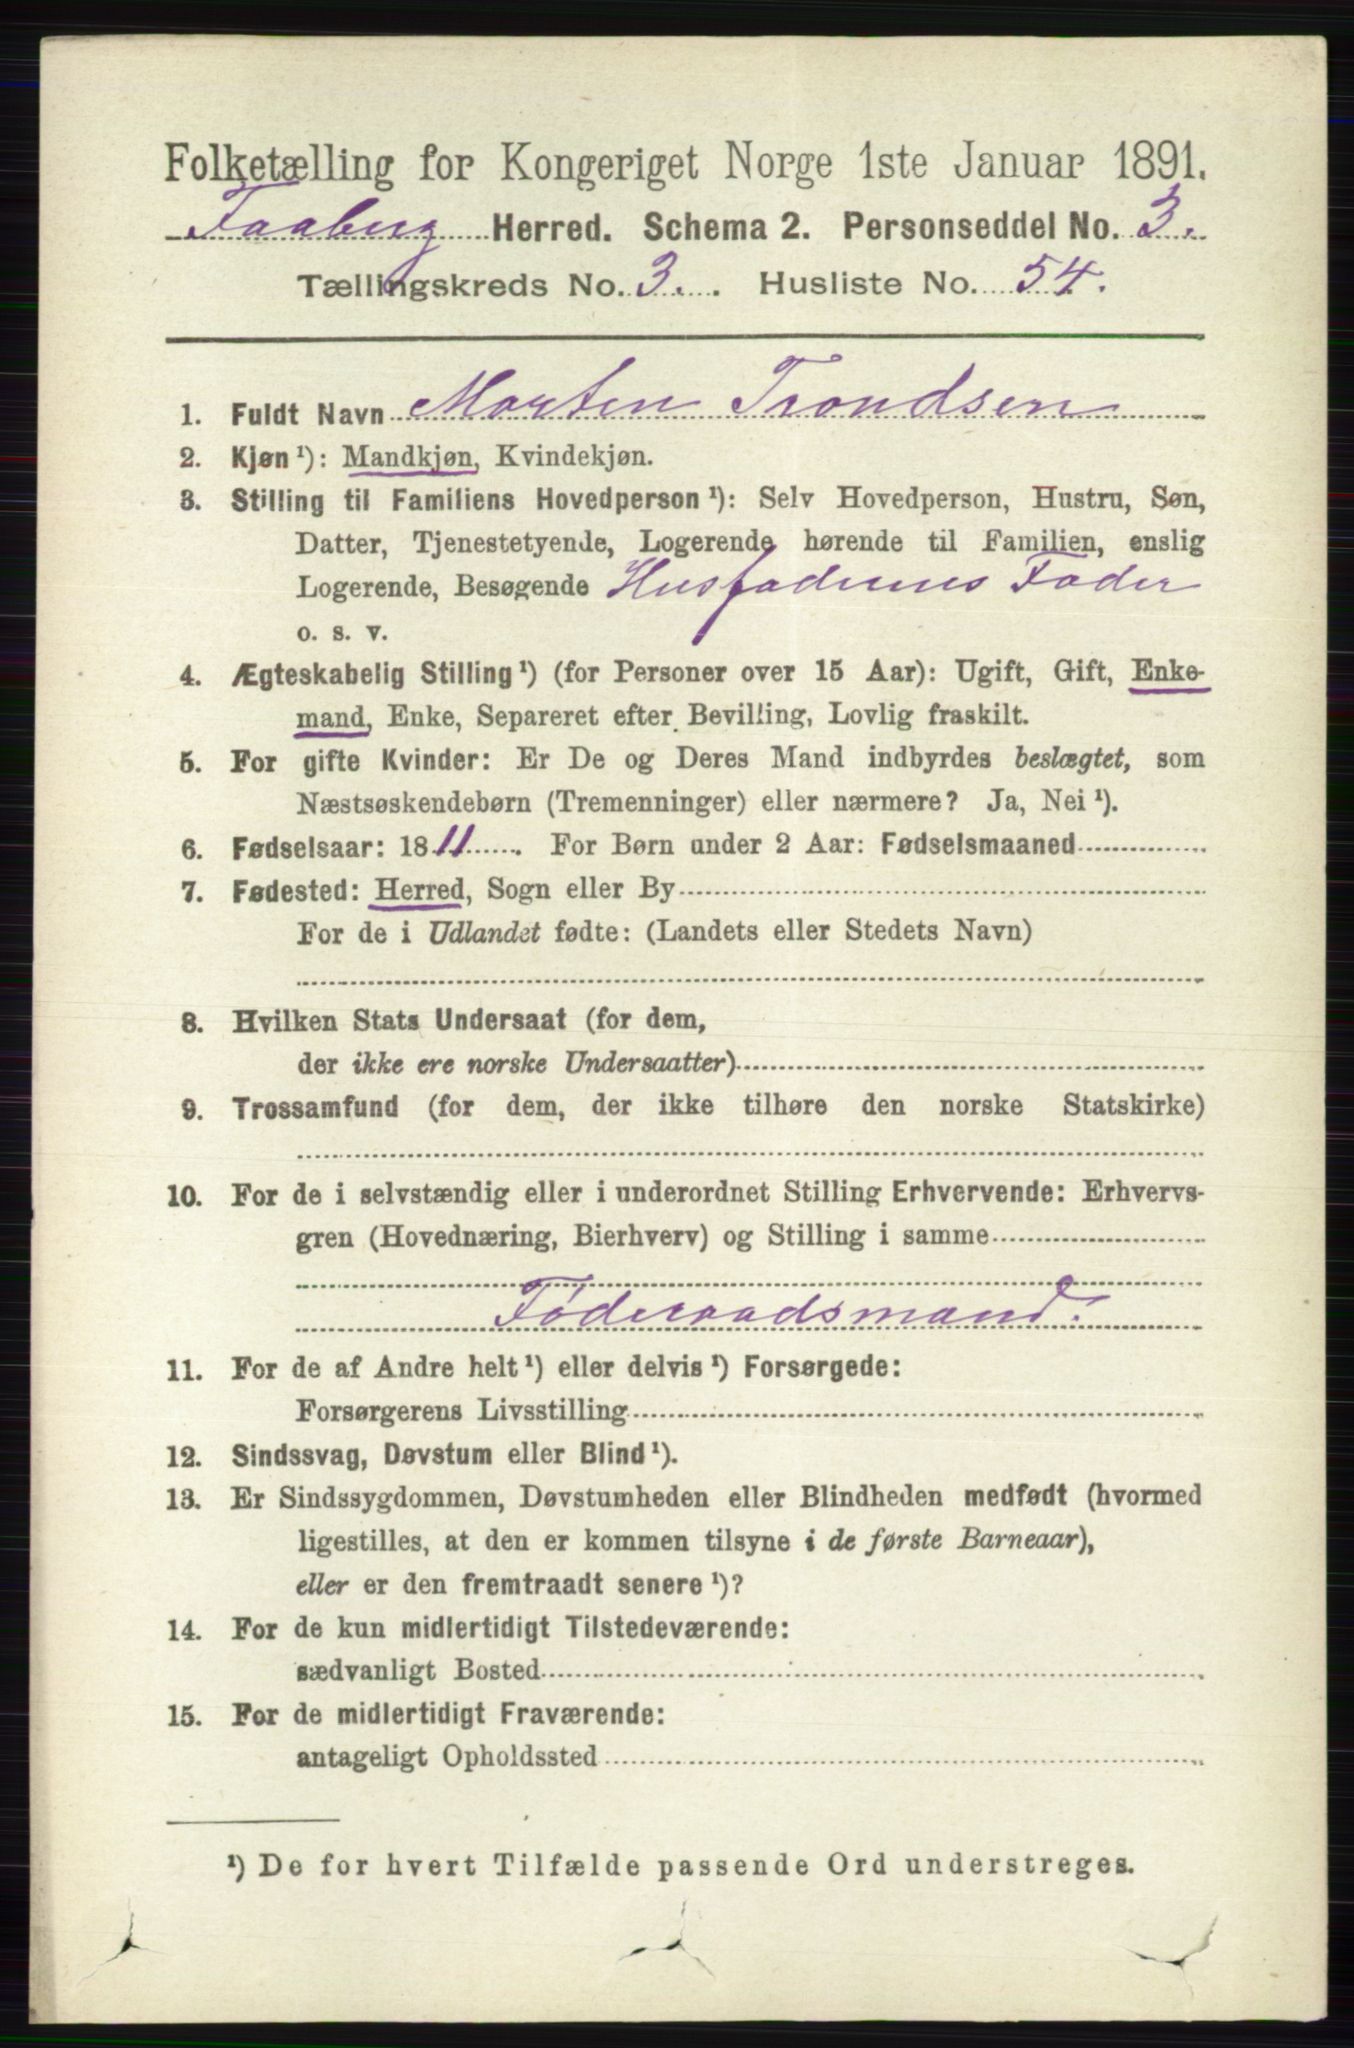 Folketælling for Kongeriget Norge 1ste Januar 1891.
Faaberg Herred. Schema 2. Personseddel No. 3.
Tællingskreds No. 3. Husliste No. 54.
1. Fuldt Navn Morten Trondsen
2. Kjøn ¹): Mandkjøn, Kvindekjøn.
3. Stilling til Familiens Hovedperson ¹): Selv Hovedperson, Hustru, Søn,
Datter, Tjenestetyende, Logerende hørende til Familien, enslig
Logerende, Besøgende Husfaderens Fader
o. s. v.
4. Ægteskabelig Stilling ¹) (for Personer over 15 Aar): Ugift, Gift, Enke-
mand, Enke, Separeret efter Bevilling, Lovlig fraskilt.
5. For gifte Kvinder: Er De og Deres Mand indbyrdes beslægtet, som
Næstsøskendebørn (Tremenninger) eller nærmere? Ja, Nei ¹).
6. Fødselsaar: 1811. For Børn under 2 Aar: Fødselsmaaned
7. Fødested: Herred, Sogn eller By
For de i Udlandet fødte: (Landets eller Stedets Navn)
8. Hvilken Stats Undersaat (for dem,
der ikke ere norske Undersaatter)
9. Trossamfund (for dem, der ikke tilhøre den norske Statskirke)
10. For de i selvstændig eller i underordnet Stilling Erhvervende: Erhvervs-
gren (Hovednæring, Bierhverv) og Stilling i samme
Føderaadsmand.
11. For de af Andre helt ¹) eller delvis ¹) Forsørgede:
Forsørgerens Livsstilling
12. Sindssvag, Døvstum eller Blind ¹).
13. Er Sindssygdommen, Døvstumheden eller Blindheden medfødt (hvormed
ligestilles, at den er kommen tilsyne i de første Barneaar),
eller er den fremtraadt senere ¹)?
14. For de kun midlertidigt Tilstedeværende:
sædvanligt Bosted
15. For de midlertidigt Fraværende:
antageligt Opholdssted
¹) De for hvert Tilfælde passende Ord understreges.